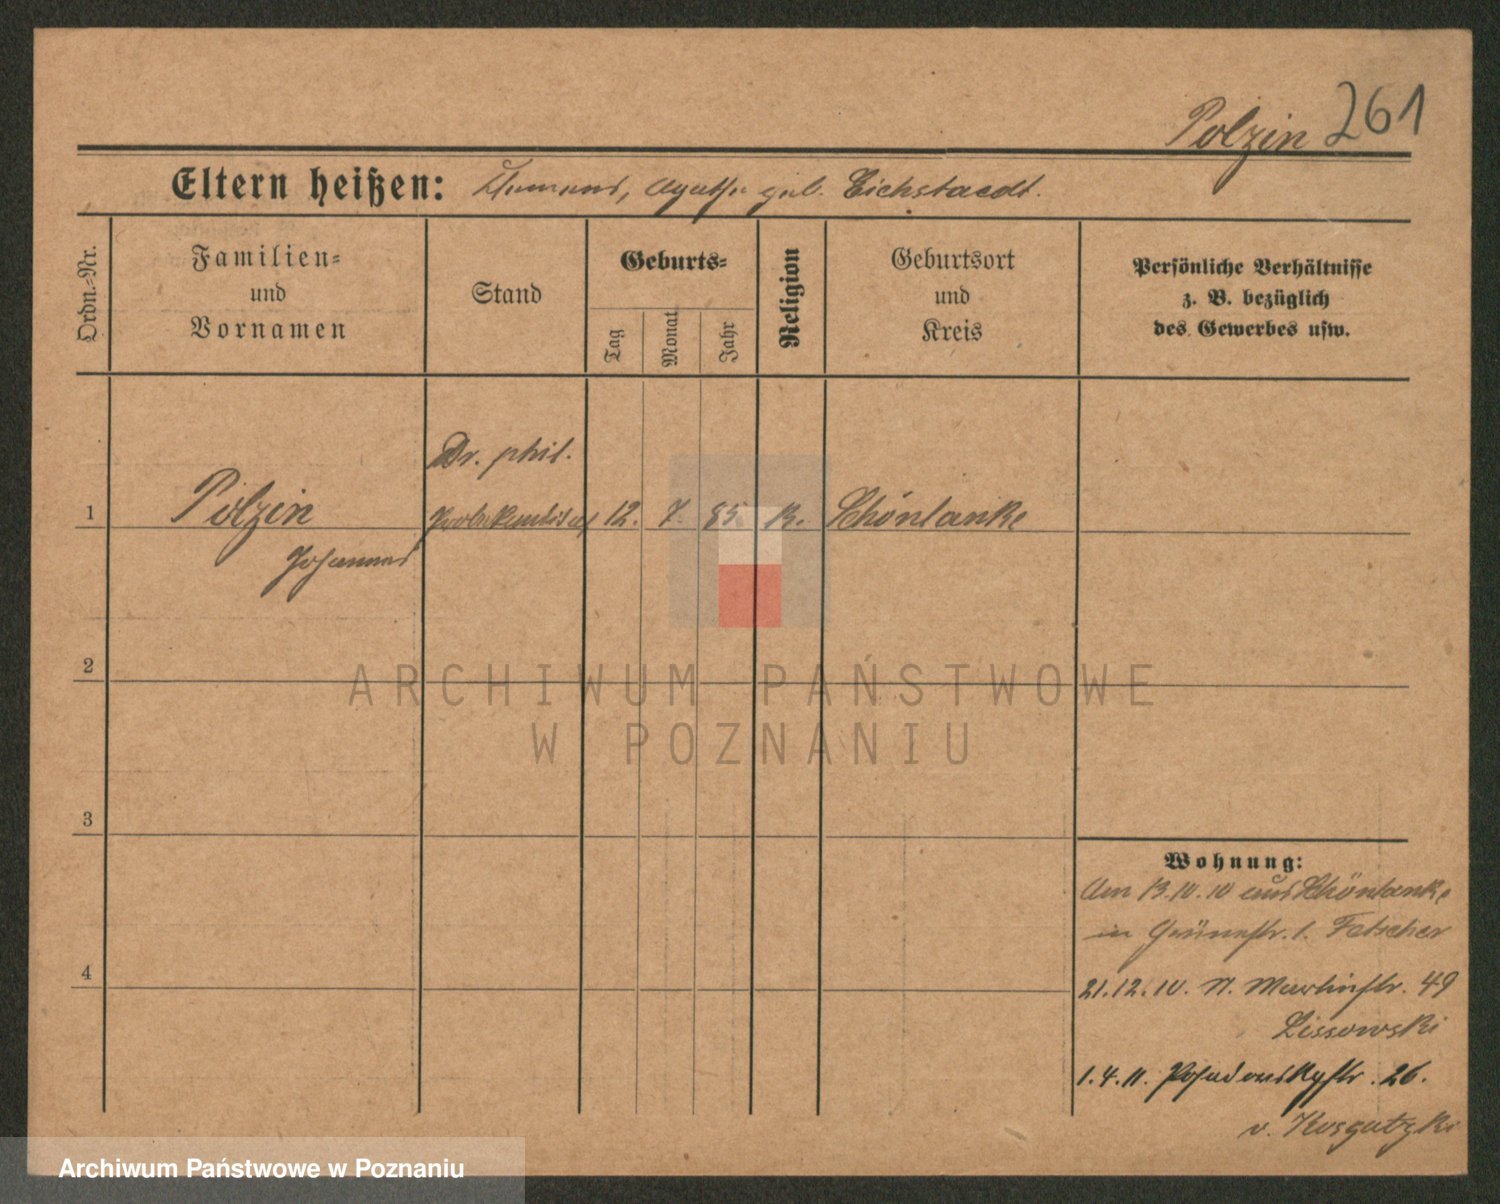 Polzin 261
Eltern heißen: Clemens, Agathe geb. Eichstaedt.
Ordn.-Nr.
Familien-
und
Vornamen
Stand
Geburts-
Tag
Monat
Jahr
Religion
Geburtsort
und
Kreis
Persönliche Verhältnisse
z. B. bezüglich
des Gewerbes usw.
Dr. phil.
1 Polzin Probekandidat 12. 7. 85 k. Schönlanke
Johannes
2
3
4
Wohnung:
Am 13.10.10 aus Schönlanke
in Grünestr. 1. Fetscher
21.12.10. St. Martinstr. 49
Lissowski
1.4.11. Posadowskystr. 26.
v.
ARCHIWUM PAŃSTWOWE
W POZNANIU
Archiwum Państwowe w Poznaniu